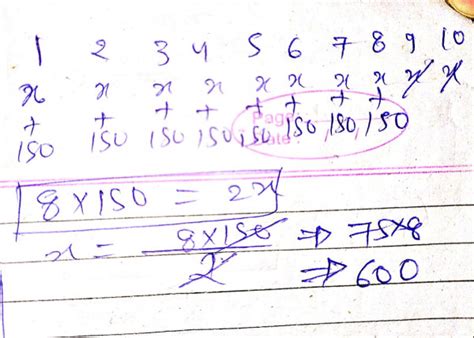 1 2 3 4 5 6 7 8 9 10
x x x x x x x x x x
+ + + + + + + +
150 150 150 150 150 150 150 150
Page
Date
8 × 150 = 2x
x = 8×150 / 2 ⇒ 75×8
⇒ 600